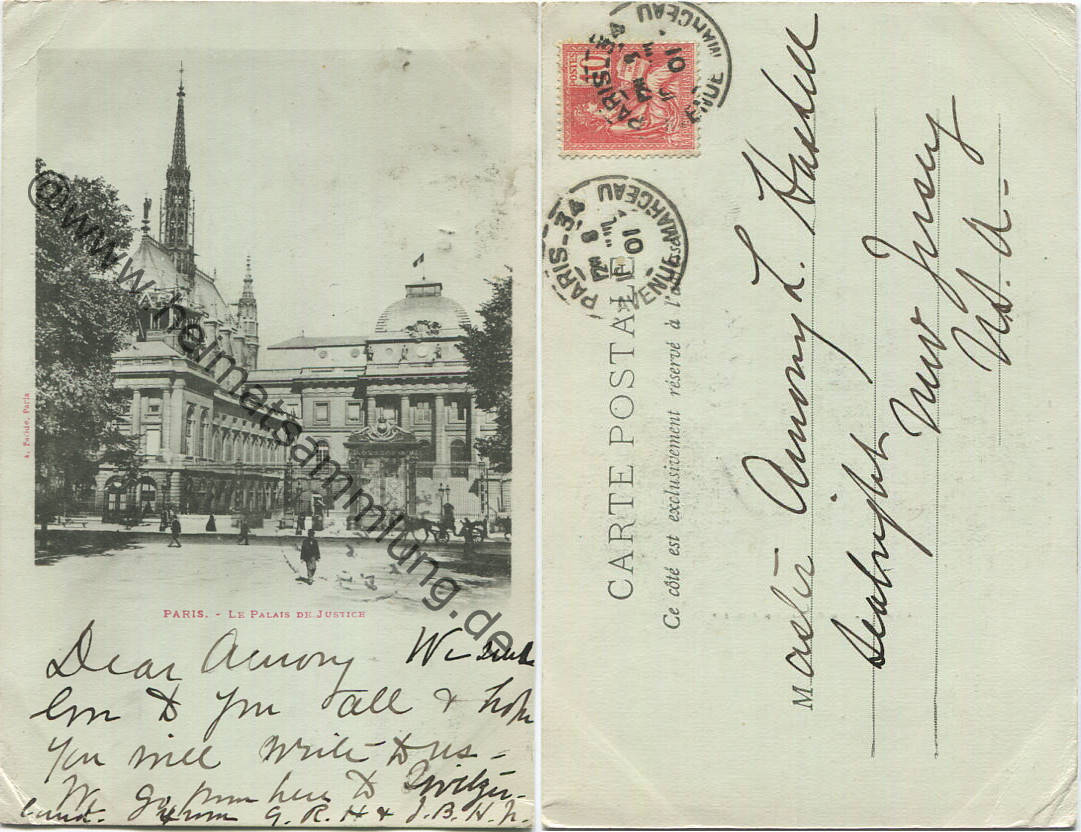 4. Paride, Paris
@www.heimatsammlung.de
PARIS. - LE PALAIS DE JUSTICE
Dear Amory We send
love to you all & hope
you will write to us -
We go from here to Switzer-
land. From G. R. H & J. B. H. Jr.
POSTES
10
PARIS-34
AVENUE MARCEAU
01
PARIS-34
8
01
AVENUE MARCEAU
CARTE POSTALE
Ce côté est exclusivement réservé à l'adresse
Master Amory L. Haskell
Seabright
New Jersey
U.S.A-